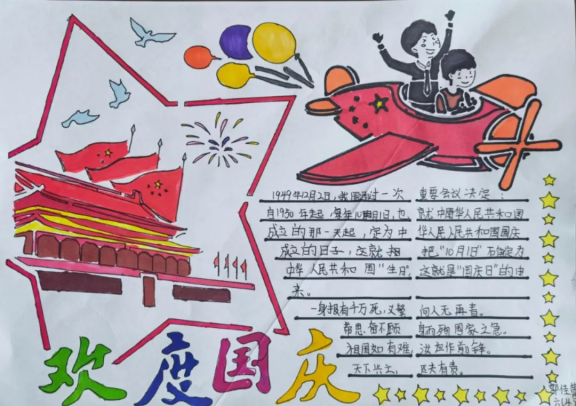 1949年12月2日,我国通过一次 重要会议决定:
自1950年起,每年10月1日,也 就中国华人民共和国
成立的那一天起,定为中 华人民人民共和国国庆
成立的日子,这就相 把"10月1日"
中华人民共和国"生日", 这就是"国庆日"的由
来。
一身报有千万死,又 向人无再言。
常思奋不顾 身而殉国家之急。
祖国如有难, 汝应作前锋。
天下兴亡, 匹夫有责。
欢度国庆